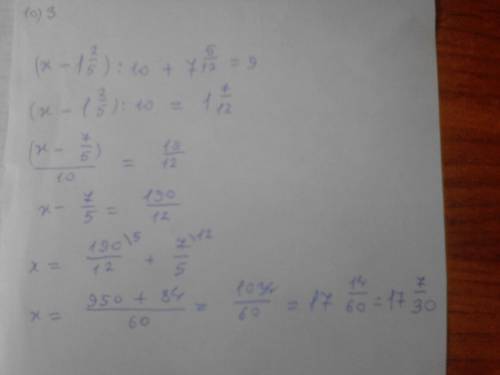 10) 3
(x - 1 2/5) : 10 + 7 5/12 = 9
(x - 1 2/5) : 10 = 1 7/12
(x - 7/5)/10 = 19/12
x - 7/5 = 190/12
x = 190\5/12 + 7\12/5
x = (950 + 84)/60 = 1034/60 = 17 14/60 = 17 7/30